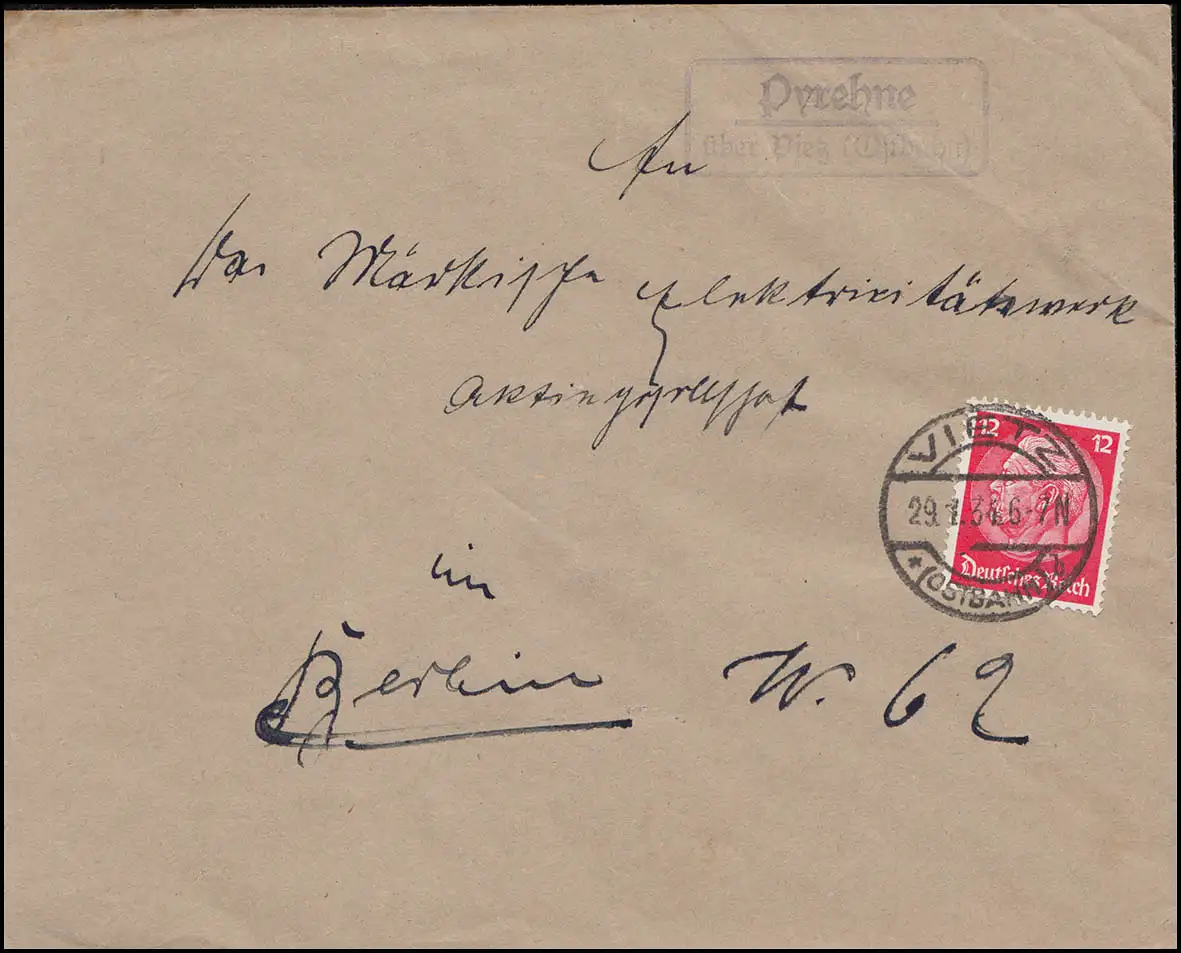 Pyrehne
über Vietz (Ostbahn)
An
Das Märkische Elektrizitätswerk
Aktiengesellschaft
12 12
VIETZ
29.1.34.6-7N
* (OSTBAHN) b
Deutsches Reich
im
Berlin W. 62